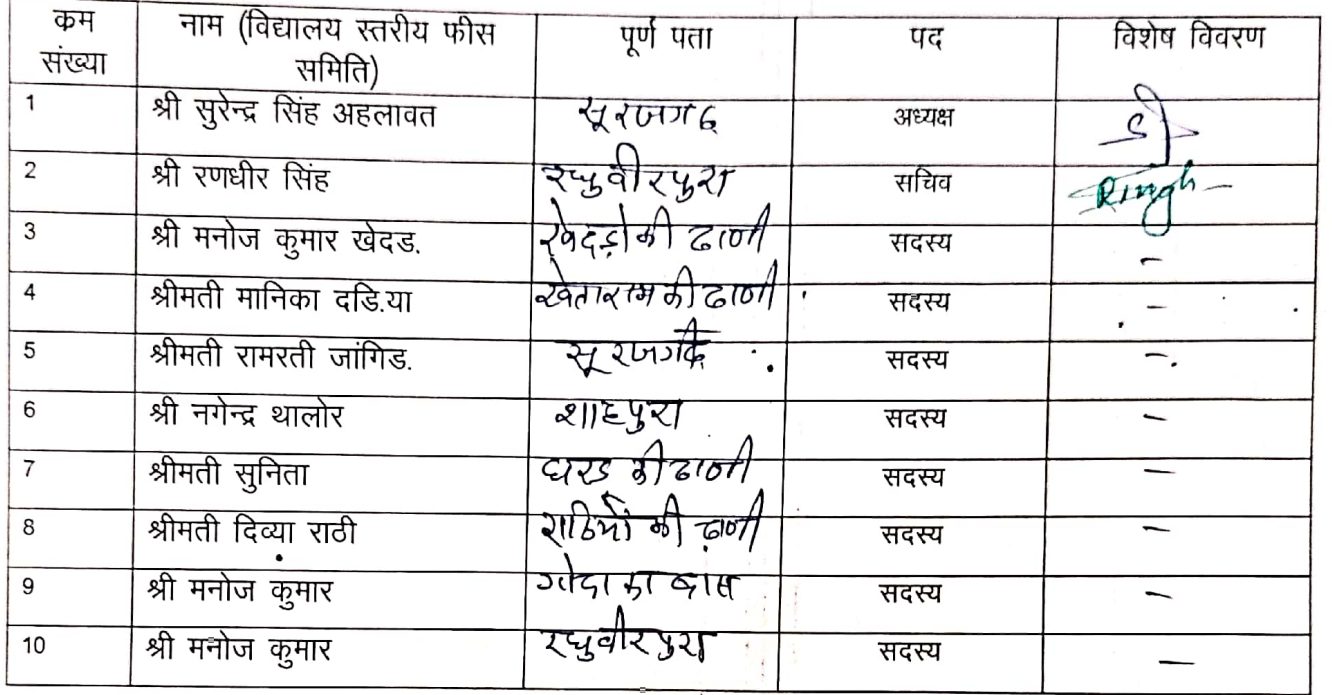 कम संख्या नाम (विद्यालय स्तरीय फीस समिति) पूर्ण पता पद विशेष विवरण
1 श्री सुरेन्द्र सिंह अहलावत सूरजगढ अध्यक्ष
2 श्री रणधीर सिंह रघुवीरपुरा सचिव RSingh
3 श्री मनोज कुमार खेदड. खेदड़ो की ढाणी सदस्य -
4 श्रीमती मानिका दडि.या खेताराम की ढाणी सदस्य -
5 श्रीमती रामरती जांगिड. सूरजगढ सदस्य -
6 श्री नगेन्द्र थालोर शाहपुरा सदस्य -
7 श्रीमती सुनिता घरड की ढाणी सदस्य -
8 श्रीमती दिव्या राठी राठियों की ढाणी सदस्य -
9 श्री मनोज कुमार गोदा का बास सदस्य -
10 श्री मनोज कुमार रघुवीरपुरा सदस्य -